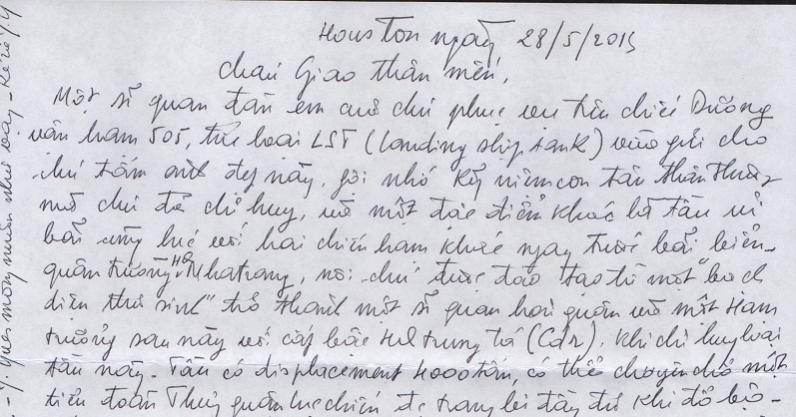 Houston ngày 28/5/2015
cháu Giao thân mến,
Một sĩ quan đàn em cũ chú phục vụ trên chiếc Dương
vận hạm 505, thuộc loại LST (landing ship tank) vừa gửi cho
chú tấm ảnh đẹp này, gợi nhớ kỷ niệm con tàu thân thương
mà chú đã chỉ huy, và một đặc điểm khác là tàu ủi
bãi cùng lúc với hai chiến hạm khác ngay trước bãi biển
quân trường HQ Nhatrang, nơi chú được đào tạo từ một "bạch
diện thư sinh" trở thành một sĩ quan hải quân và một Hạm
trưởng sau này với cấp bậc HQ trung tá (Cdr), khi chỉ huy loại
tàu này. Tàu có displacement 4000 tấn, có thể chuyên chở một
tiểu đoàn Thủy quân lục chiến đ trang bị đầy đủ khi đổ bộ -
mong muốn như vậy -